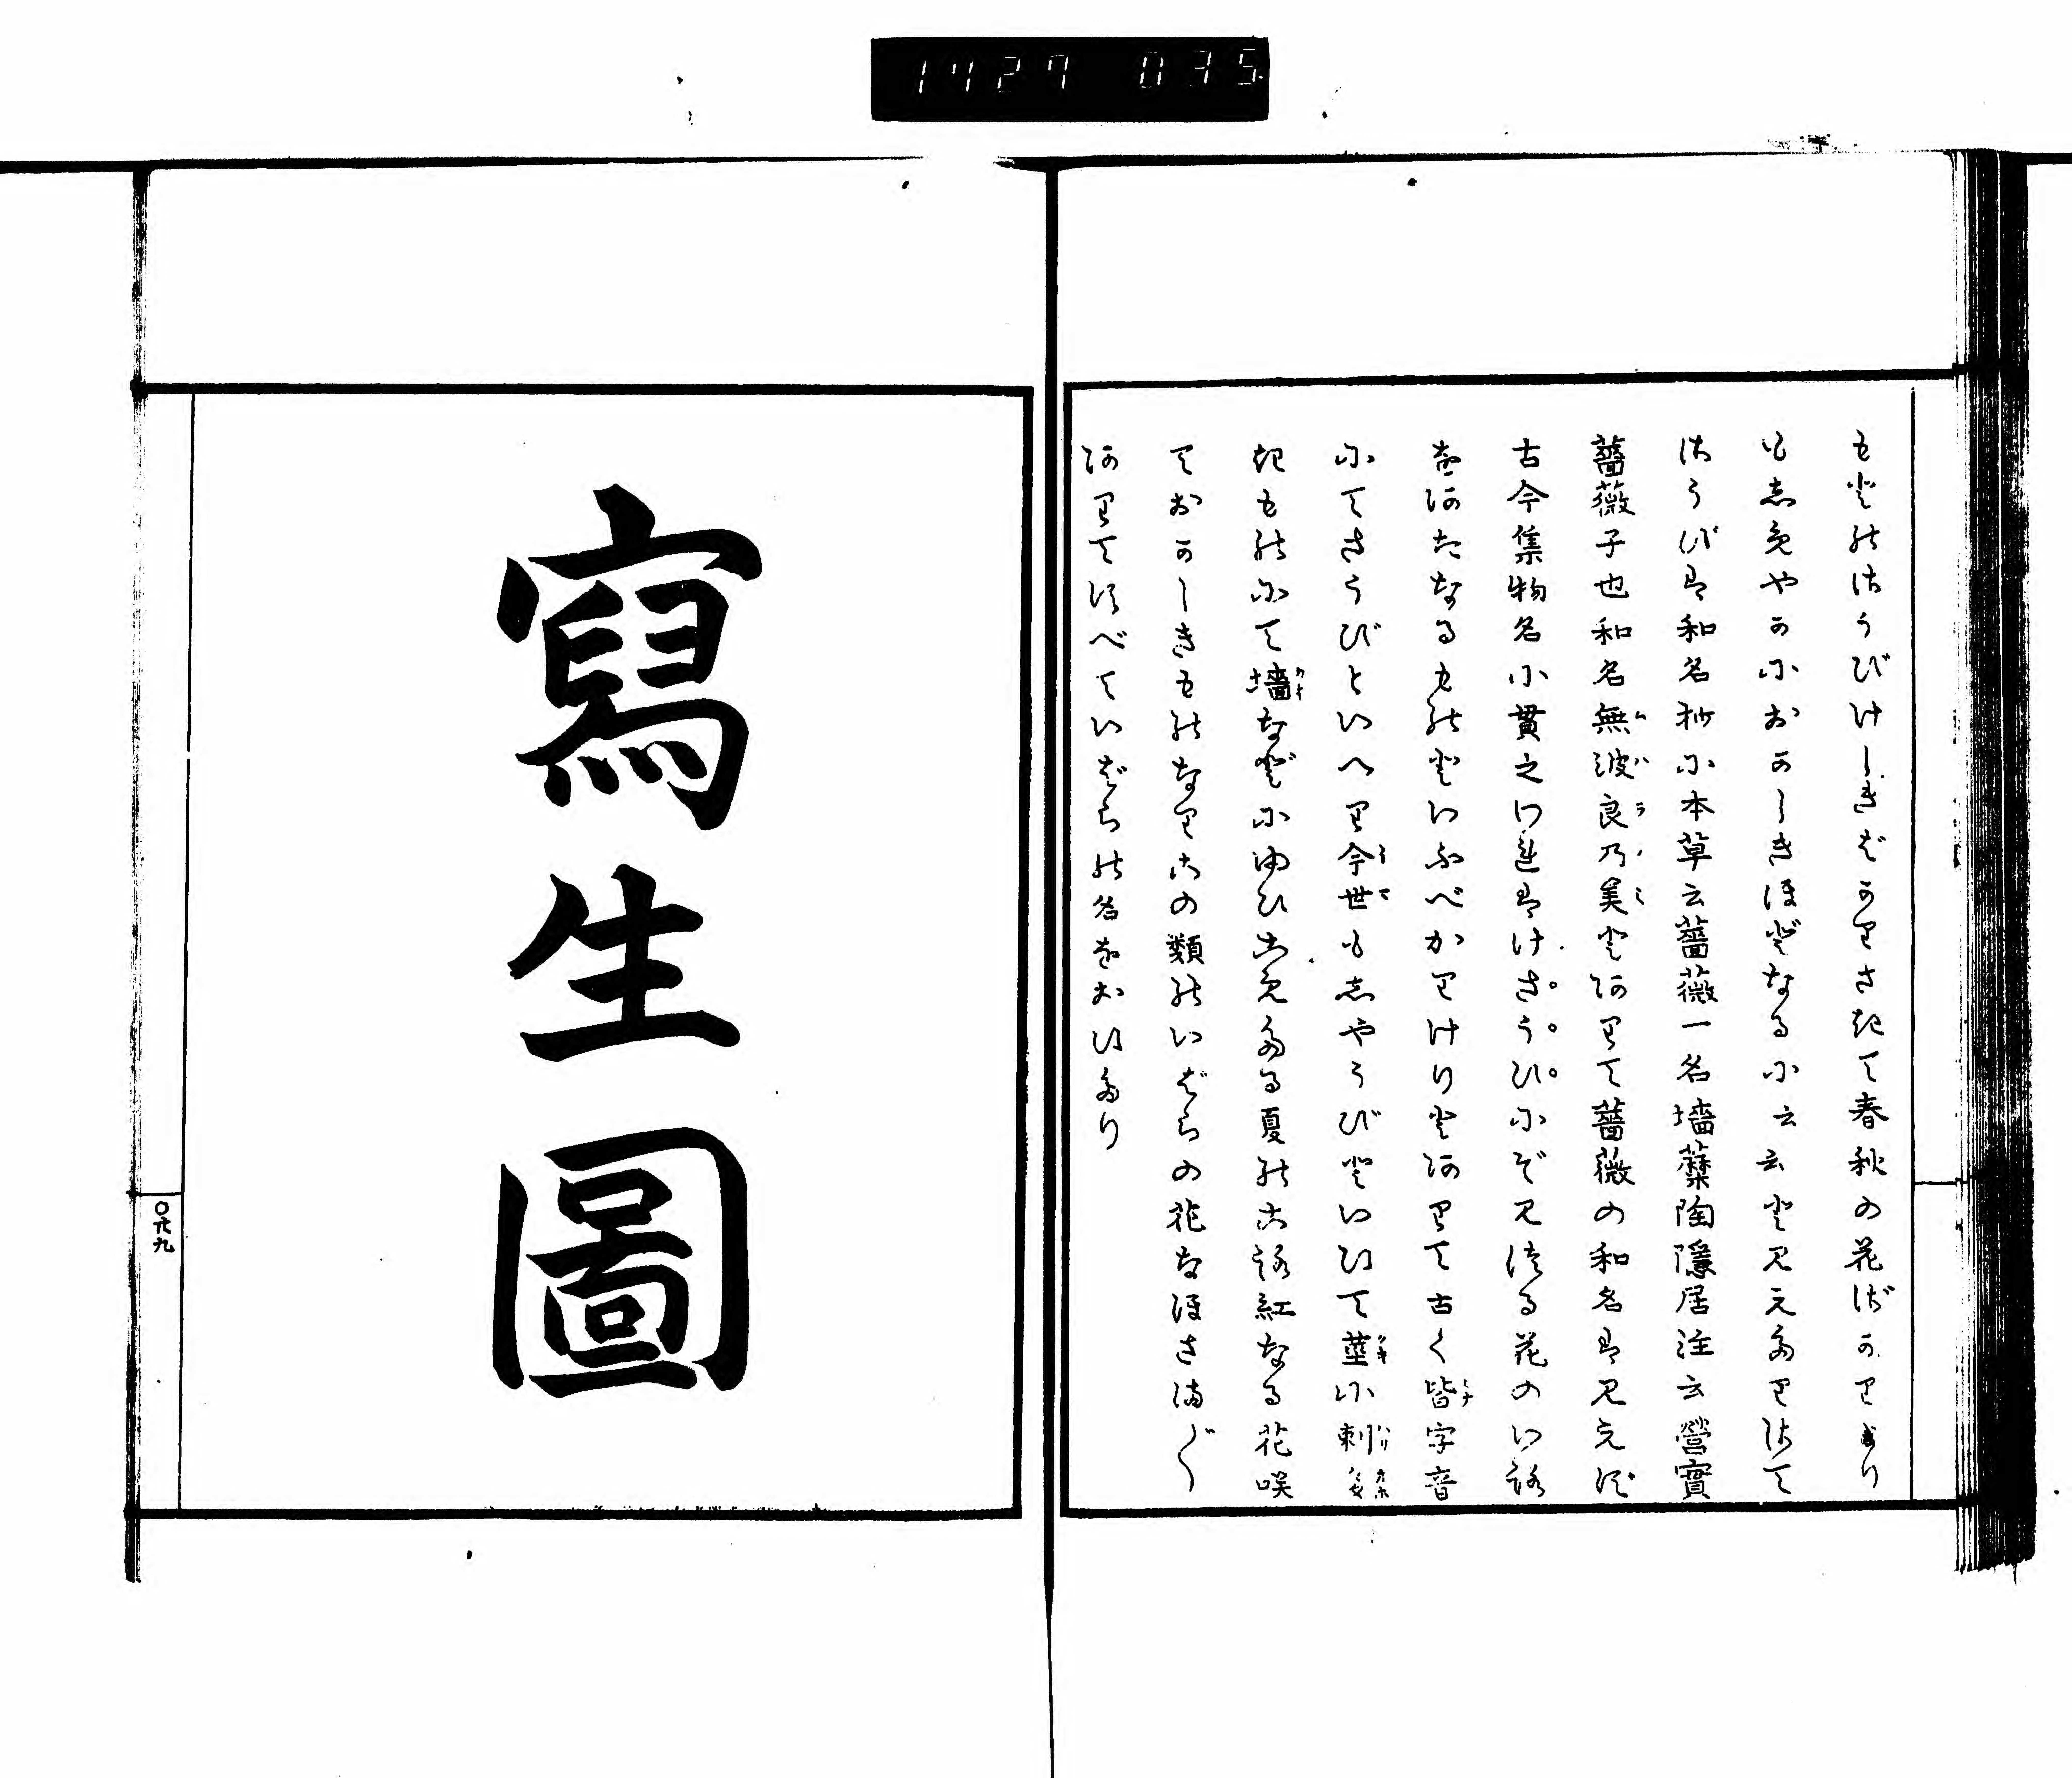 1427 035
もとのさうびけしきばかりさきて春秋の花ばかりより
もしめやかにおかしきほどなるに云云とみえたりさて
さうびは和名抄に本草云薔薇一名墻蘼陶隱居注云營實
薔薇子也和名無波良乃美とありて薔薇の和名はみえず
古今集物名に貫之われはけさうひにぞみつる花のいろ
をあだなるものといふべかりけりとありて古く皆字音
にてさうびといへり今世もしやうびといひて莖に刺
きものにて墻などにゆひこめたる夏のころ紅なる花咲
ておかしきものなりこの類のいばらの花なほさまざま
ありてすべていばらの名をおひたり
寫生圖
〇廿九